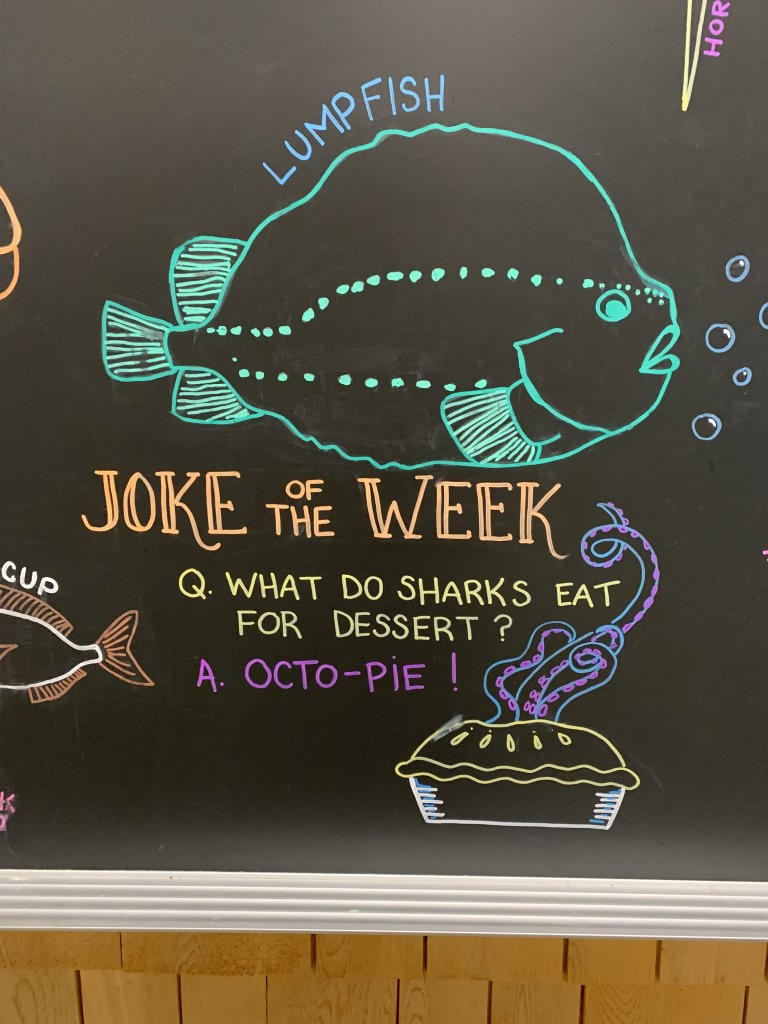 HOR
LUMPFISH
JOKE OF THE WEEK
CUP
Q. WHAT DO SHARKS EAT
FOR DESSERT?
A. OCTO-PIE!